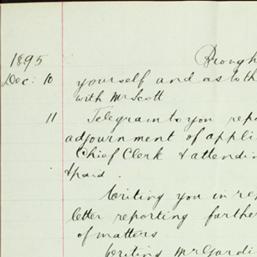 Brough
1895
Dec: 10 yourself and as to th
with Mr Scott
11 Telegram to you repo
adjournment of appli
Chief Clerk & attendin
& paid.
Writing you in rep
letter reporting farthe
of matters
Writing Mr Gardi